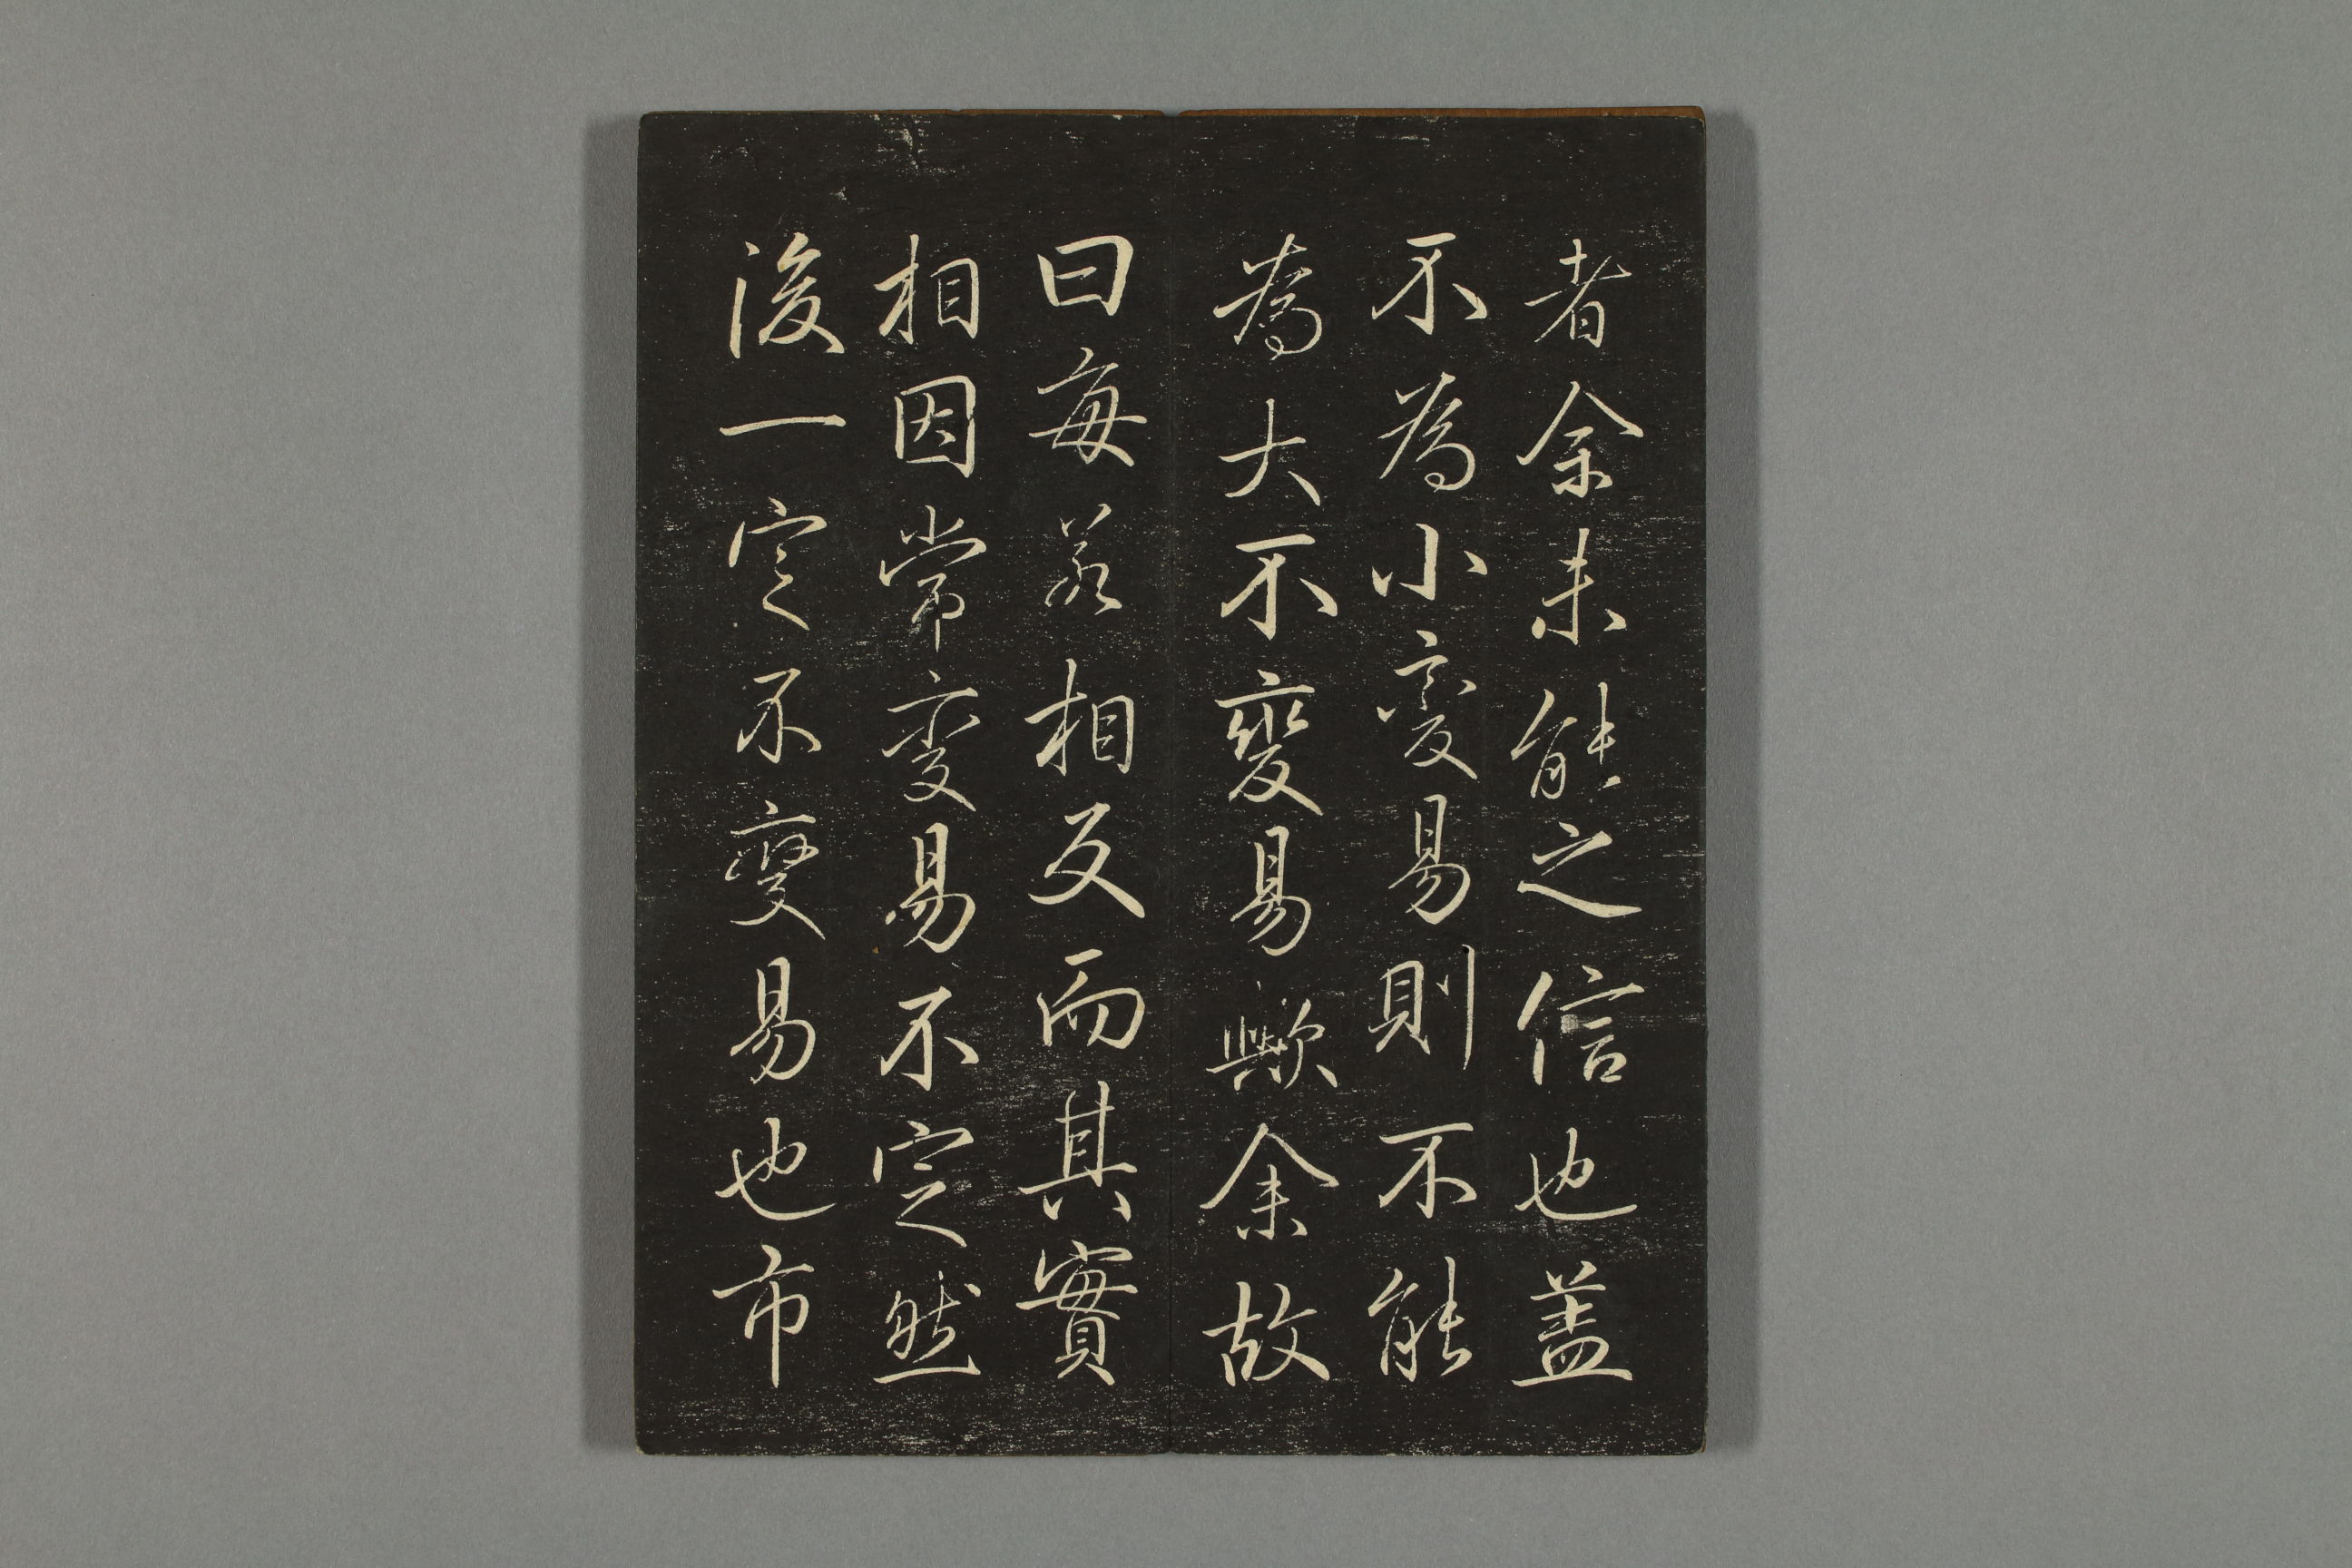 者余未能之信也蓋
不為小變易則不能
為大不變易歟余故
曰每若相反而其實
相因常變易不定然
後一定不變易也市